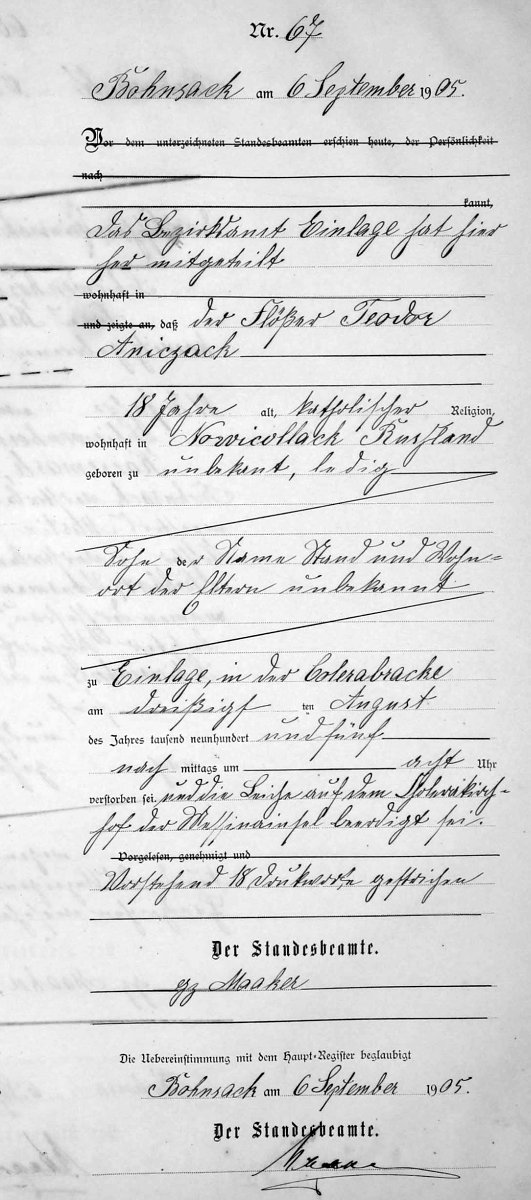 Nr. 67
Bohnsack am 6 September 1905.
Vor dem unterzeichneten Standesbeamten erschien heute, der Persönlichkeit
nach
kannt,
Das Bezirksamt Einlage hat hier
her mitgeteilt
wohnhaft in
und zeigte an, daß der Flößer Teodor
Aniczack
18 Jahre alt, katholischer Religion,
wohnhaft in Nowicollack Rußland
geboren zu unbekant, ledig
Sohn der Name Stand und Wohn-
ort der Eltern unbekannt
zu Einlage, in der Colerabracke
am dreißigs ten August
des Jahres tausend neunhundert und fünf
nach mittags um acht Uhr
verstorben sei und die Leiche auf dem Cholerakirch-
hof der Messinainsel beerdigt sei.
Vorgelesen, genehmigt und
Vorstehend 18 Drukworte gestrichen
Der Standesbeamte.
gz Maaker
Die Uebereinstimmung mit dem Haupt-Register beglaubigt
Bohnsack am 6 September 1905.
Der Standesbeamte.